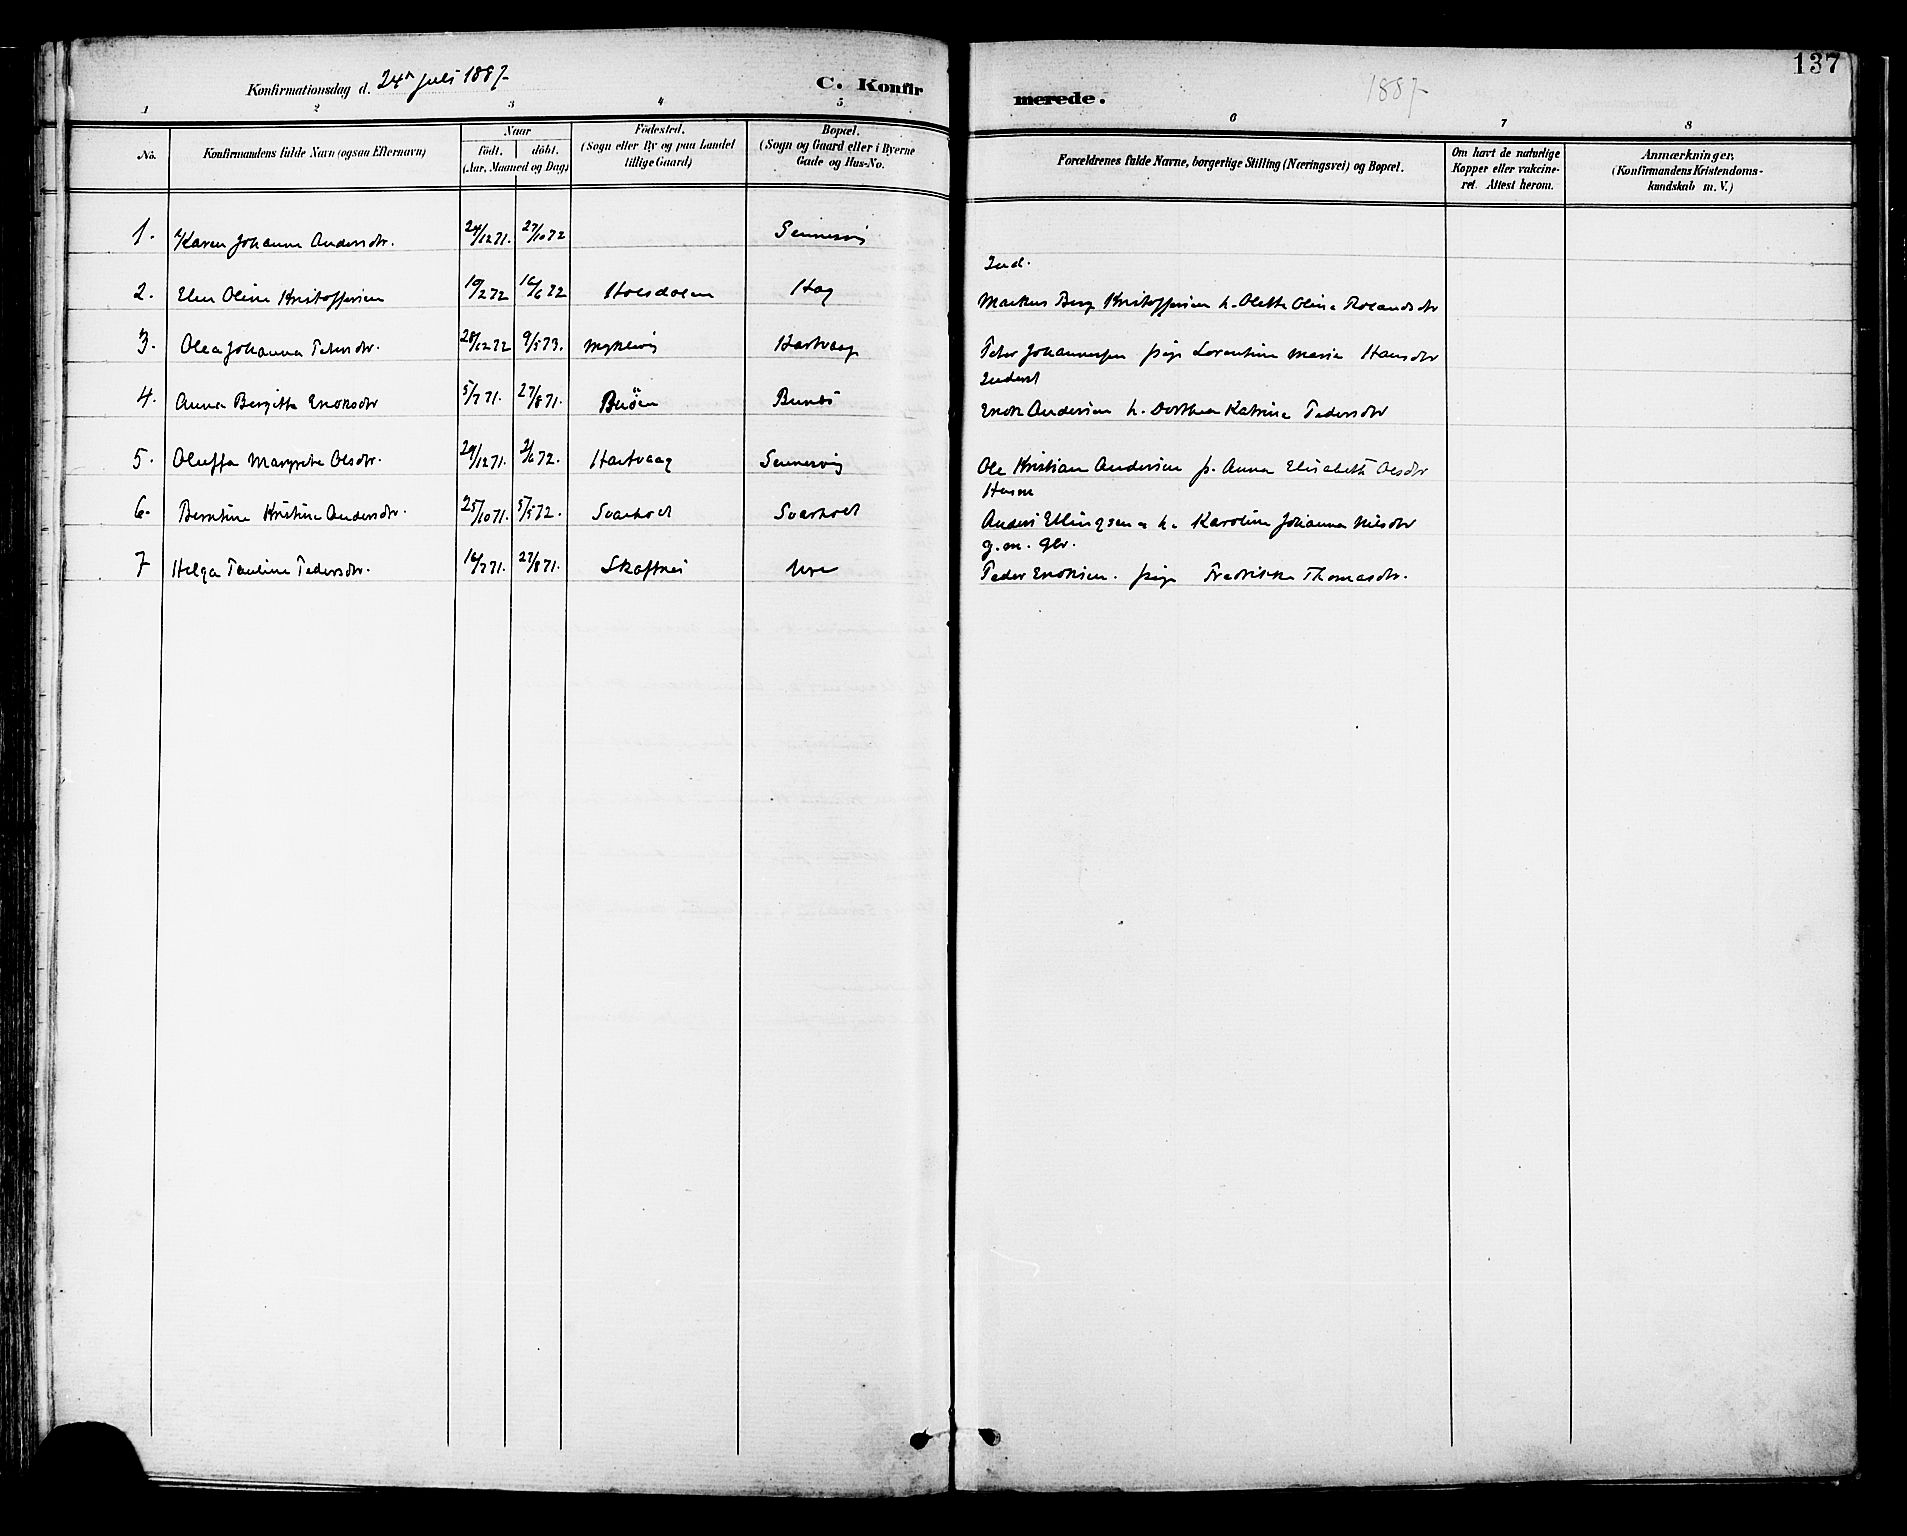 137
Konfirmationsdag d. 24de Juli 1887
C. Konfirmerede.
1887
1 2 3 4 5 6 7 8
No.
Konfirmandens fulde Navn (ogsaa Efternavn)
Naar
födt. döbt.
(Aar, Maaned og Dag)
Födested.
(Sogn eller By og paa Landet
tillige Gaard)
Bopæl.
(Sogn og Gaard eller i Byerne
Gade og Hus-No.
Forældrenes fulde Navne, borgerlige Stilling (Næringsvei) og Bopæl.
Om havt de naturlige
Kopper eller vakcine-
ret. Attest herom.
Anmærkninger.
(Konfirmandens Kristendoms-
kundskab m. V.)
1. Karen Johanna Andersdtr. 24/12 71. 27/10 72 Sennesvig
Ind.
2. Elen Oline Kristoffersen 19/2 72 16/6 72 Holsdalen Hag Markus Berg Kristoffersen h. Olette Olina Rolandsdtr
3. Olea Johanna Petersdtr. 28/12 72 9/5 73. Myklevig Hartvaag Peter Johannesen pige Lorentine Maria Hansdtr
Inderst
4. Anna Bergitta Enoksdtr 5/7 71. 27/8 71. Buöen Bunes Enok Andersen h. Dorthea Katrina Pedersdtr
5. Oluffa Margreta Olsdtr. 29/12 71. 2/6 72. Hartvaag Sennesvig Ole Kristian Andersen p. Anna Elisabeth Olsdtr
Husm
6. Berntine Kristine Andersdtr. 25/10 71. 5/5 72. Svarholt Svarholt Anders Ellingsen h. Karoline Johanna Nilsdtr
g.m. gbr.
7 Helga Pauline Pedersdtr. 16/7 71. 27/8 71. Skaftnes Ure Peder Enoksen. pige Fredrikke Thomasdtr.